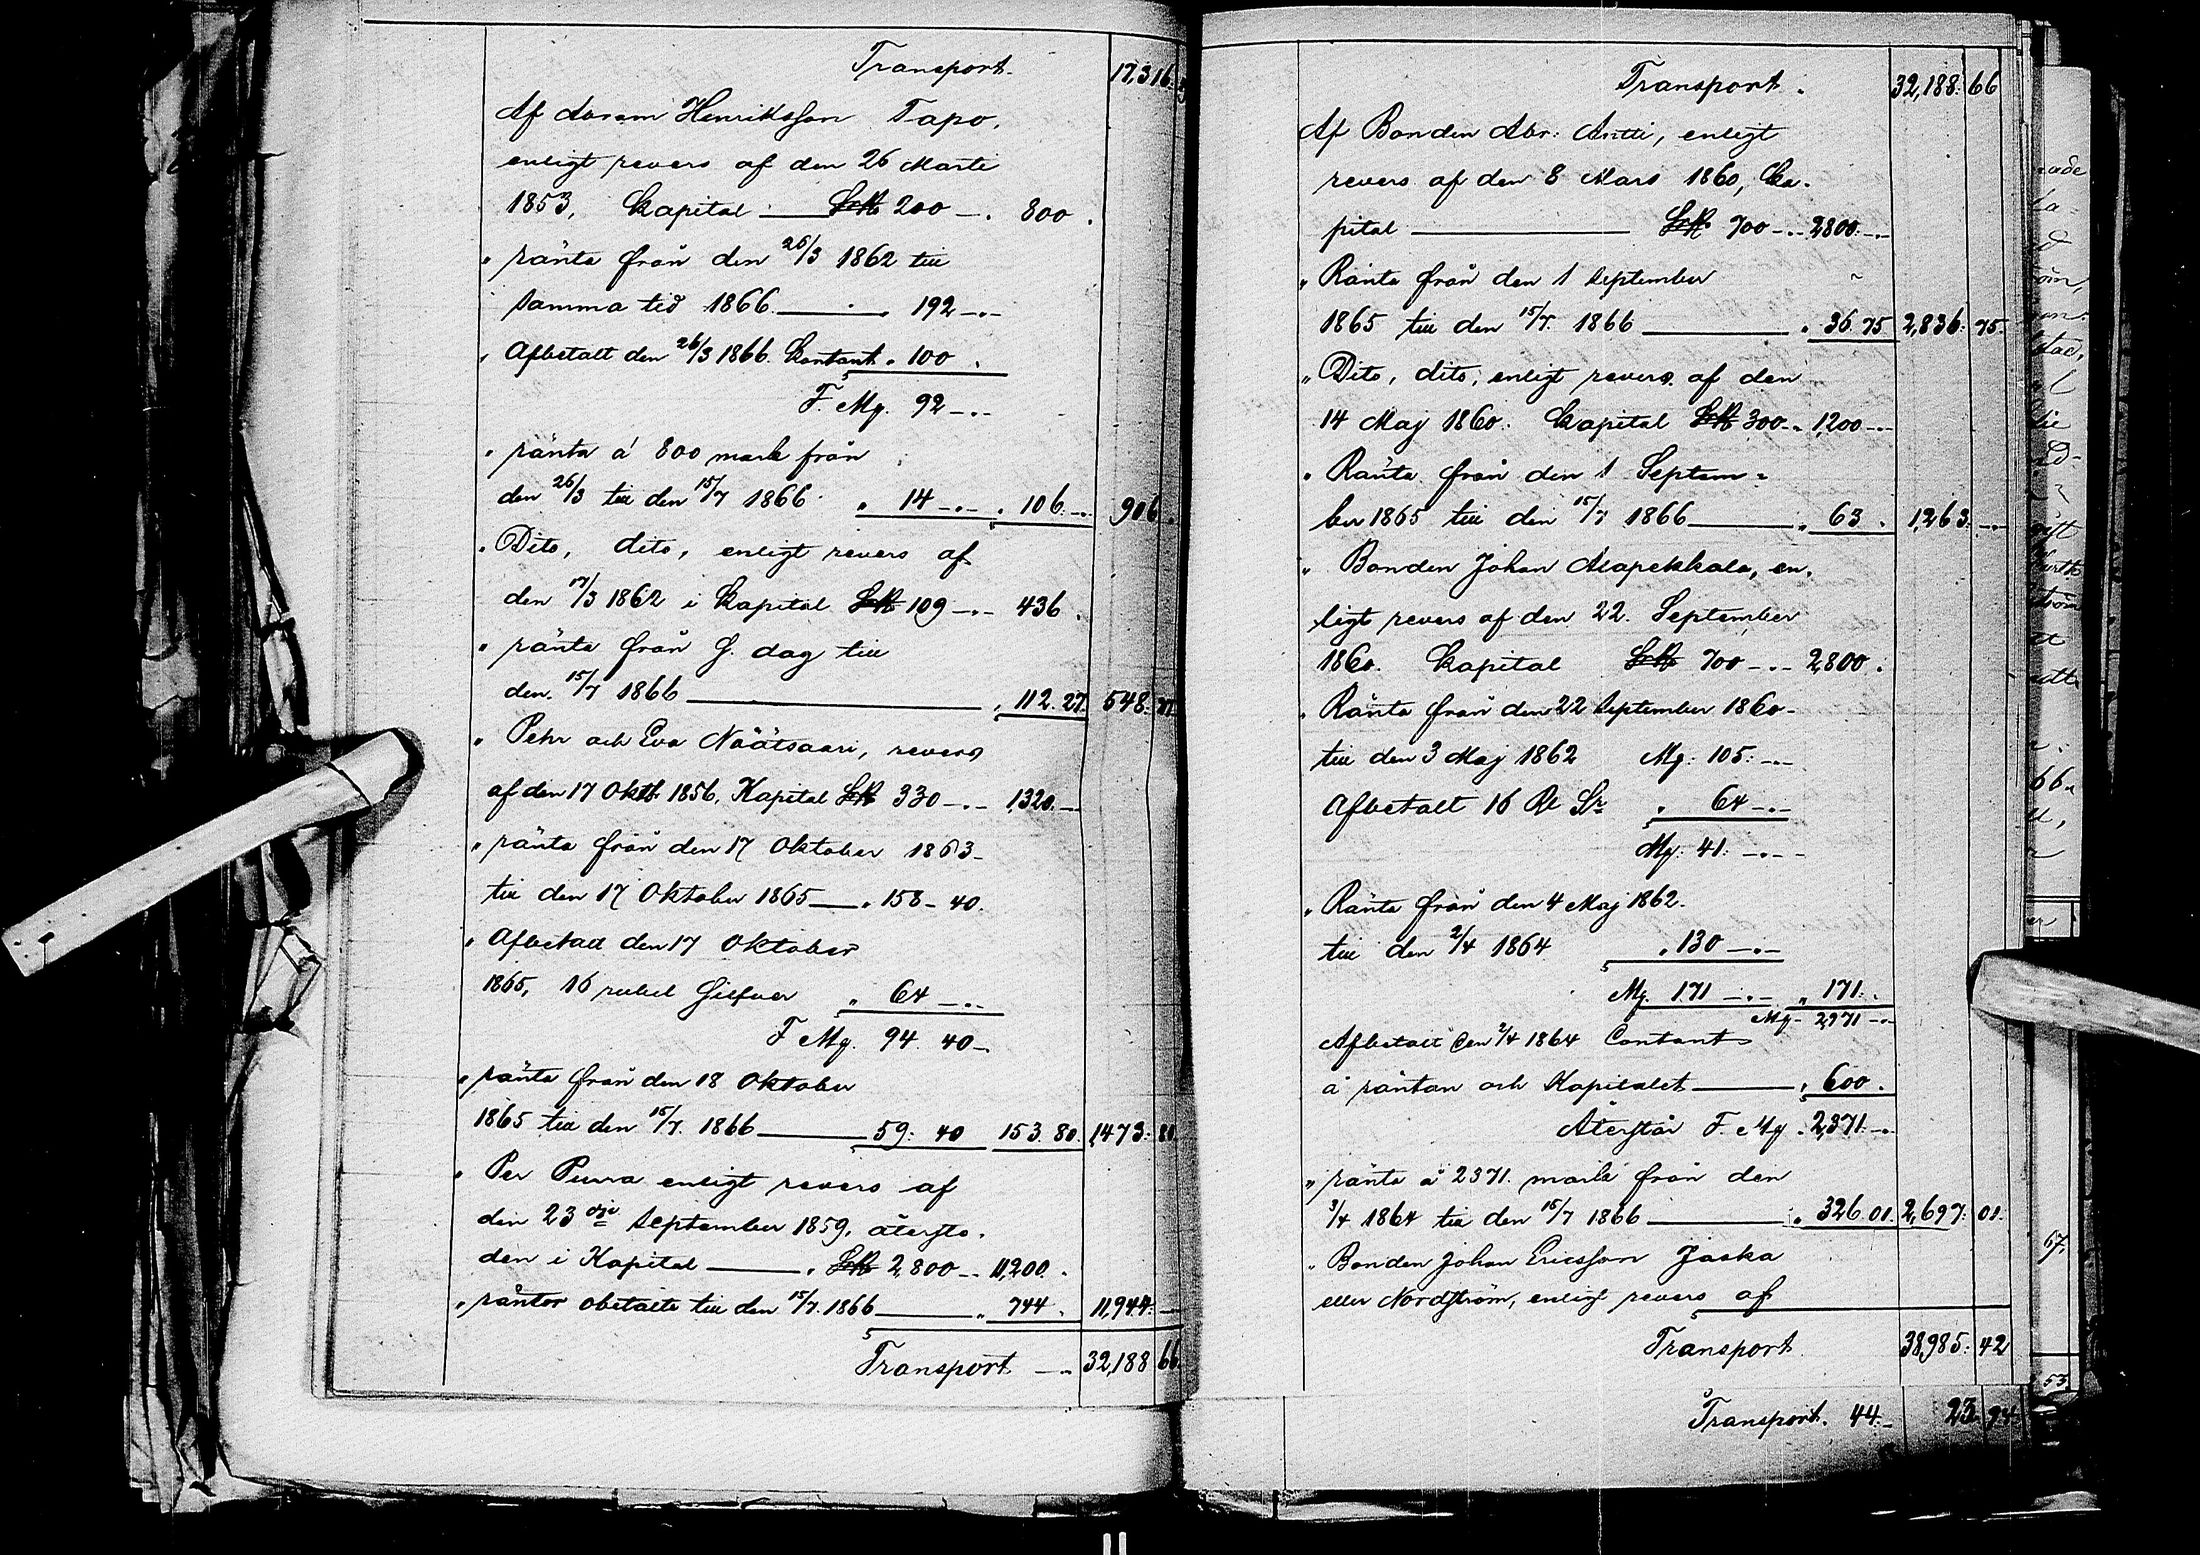 Transport. 17,316.
Af Abram Henriksson Tapo,
enligt revers af den 26 Marti
1853, Kapital SrR 200 –. 800.
" ränta från den 26/3 1862 till
samma tid 1866. " 192 –.–
" Afbetalt den 26/3 1866. Kontant. " 100.
F. Mg. 92 –.–
" ränta á 800 mark från
den 26/3 till den 15/7 1866 " 14 –.– " 106. –.– 906.
" Dito, dito, enligt revers af
den 17/3 1862 i Kapital SrR 109 –.– 436.
" ränta från f. dag till
den 15/7 1866 " 112. 27. 548. 27.
" Pehr och Eva Näätsaari, revers
af den 17 Oktb. 1856, Kapital SrR 330 –.– 1,320. –
" ränta från den 17 Oktober 1863 –
till den 17 Oktober 1865 " 158 – 40.
" Afbetalt den 17 Oktober
1865, 16 rubel Silfver " 64 –.–
F Mg. 94. 40 –
" ränta från den 18 Oktober
1865 till den 15/7. 1866 59: 40 153. 80. 1,473: 80.
" Per Purra enligt revers af
den 23 dje September 1859, återsto-
den i Kapital " SrR 2,800 – 11,200.
" räntor obetalte till den 15/7. 1866 " 744. 11,944: –
Transport –.– 32,188 66.
Transport. 32,188: 66
Af Bonden Abr: Antti, enligt
revers af den 8 Mars 1860, Ca-
pital SrR 700 –.– 2800. –.–
" Ränta från den 1 September
1865 till den 15/7. 1866 " 36. 75 2,836: 75.
" Dito, dito, enligt revers af den
14 Maj 1860. Kapital SrR 300 –. 1,200 –.–
" Ränta från den 1 Septem-
ber 1865 till den 15/7 1866 " 63. 1,263. –.–
" Bonden Johan Alapekkala, en-
ligt revers af den 22. September
1860. Kapital SrR 700 –.– 2,800.
" Ränta från den 22 September 1860 –
till den 3 Maj 1862 Mg: 105: –.–
Afbetalt 16 Rl Sr " 64 –.–
Mg: 41: –.–
" Ränta från den 4 Maj 1862.
till den 2/4 1864 " 130 –.–
Mg. 171 –.– " 171:.
Mg – 2,971 –.–
Afbetalt den 2/4 1864 Contant
á räntan och Kapitalet " 600.
Återstår F. Mg. 2,371. –.–
" ränta á 2371. mark från den
3/4 1864 till den 15/7 1866 " 326. 01. 2,697: 01.
" Bonden Johan Ericsson Jaska
eller Nordström, enligt revers af
Transport. 38,985: 42
Transport. 44. – 23 94